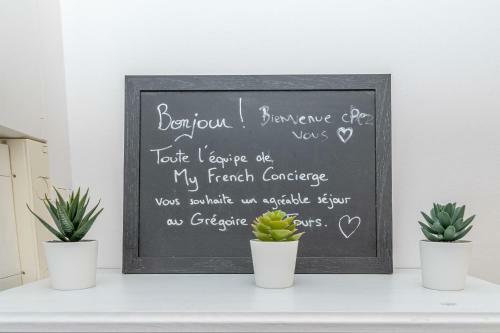 Bonjour ! Bienvenue chez
vous
Toute l'équipe de
My French Concierge
vous souhaite un agréable séjour
au Grégoire